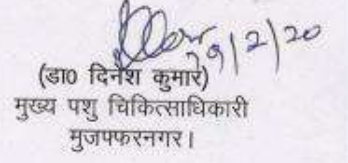 29/2/20
(डा० दिनेश कुमार)
मुख्य पशु चिकित्साधिकारी
मुजफ्फरनगर।